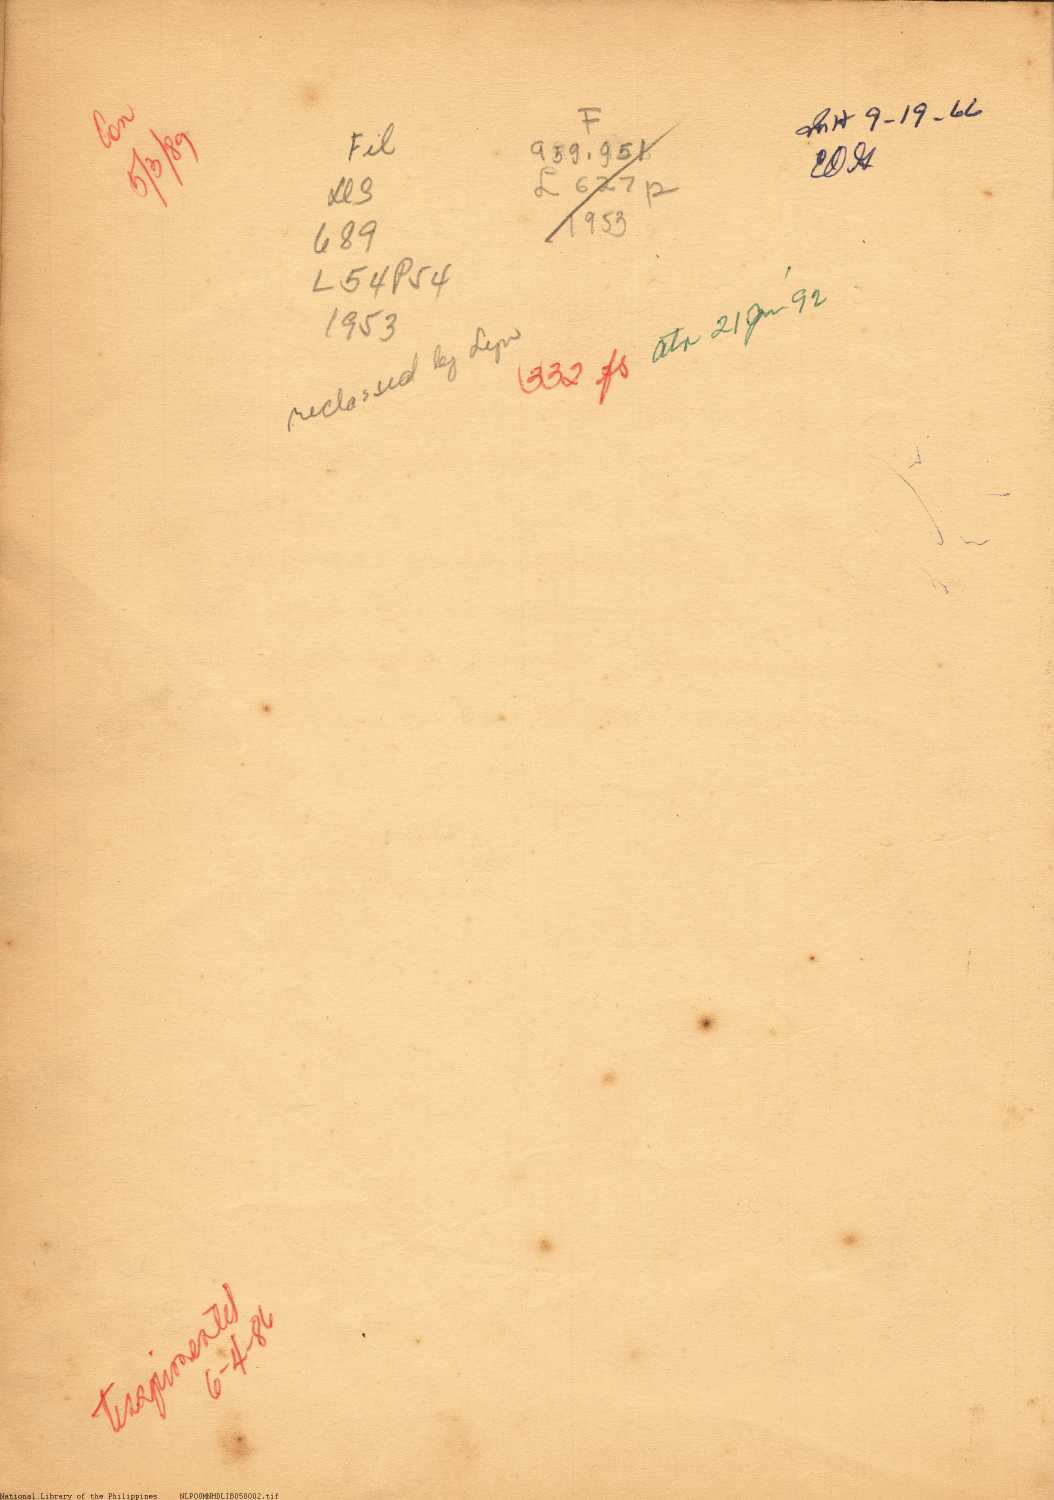 Con
5/3/89
Fil
DS
689
L54P54
1953
F
959.951
L 627 p
1953
9-19-66
EOG
reclassed by
332 fs
21 Jan '92
6-4-86
National Library of the Philippines NLPO0MNHDLIB050002.tif